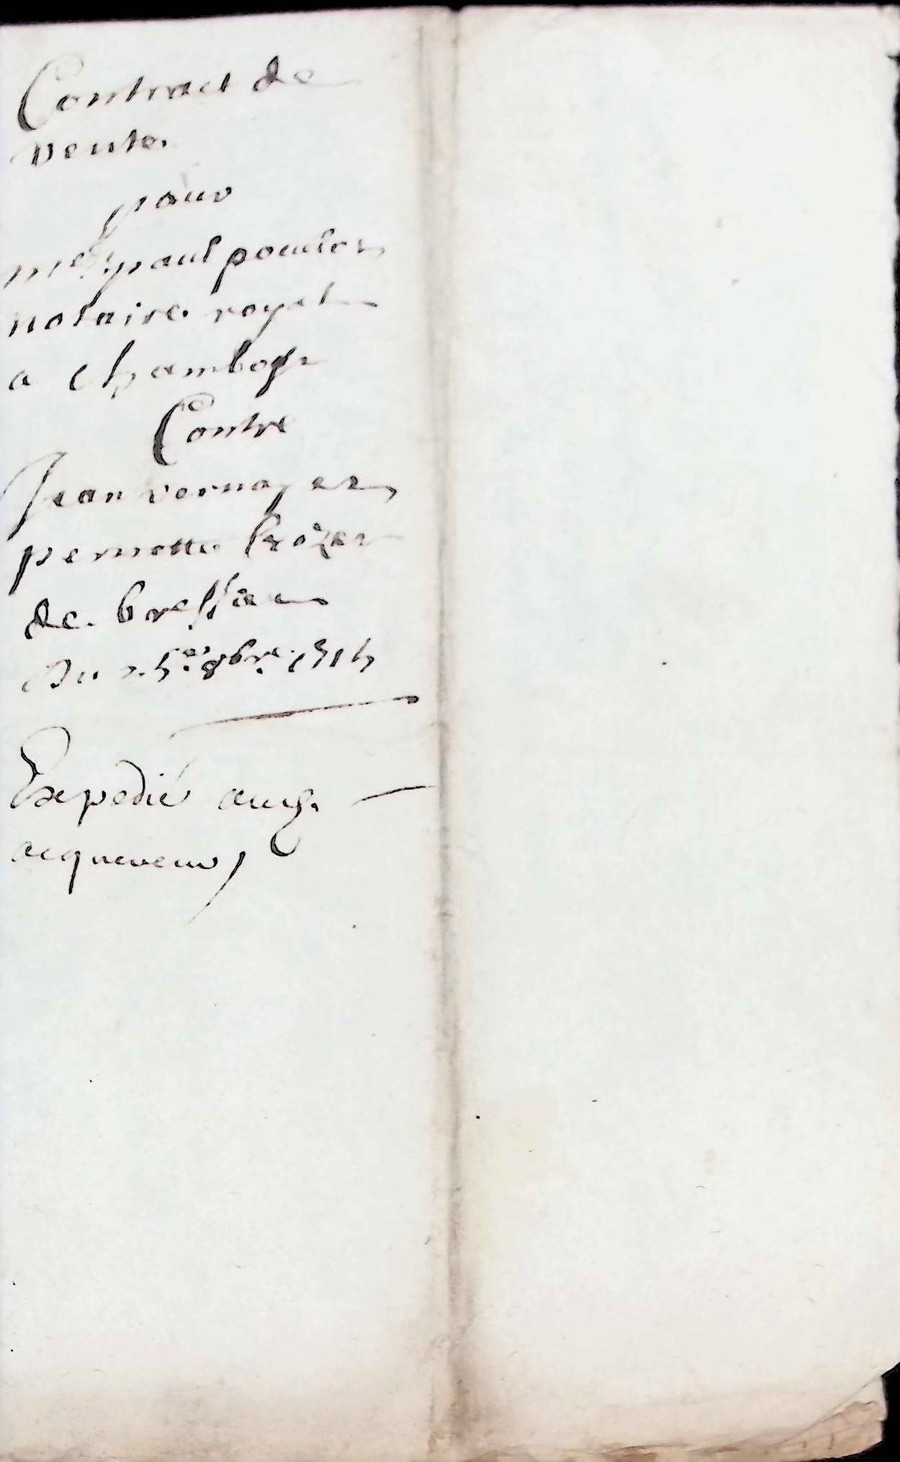 Contract de
vente.
pour
me paul poucler
notaire royal
a Chambost
Contre
Jean vernay et
pernette
de bressieu
Du 25e 8bre 1715
Expedié aud.
acquereur